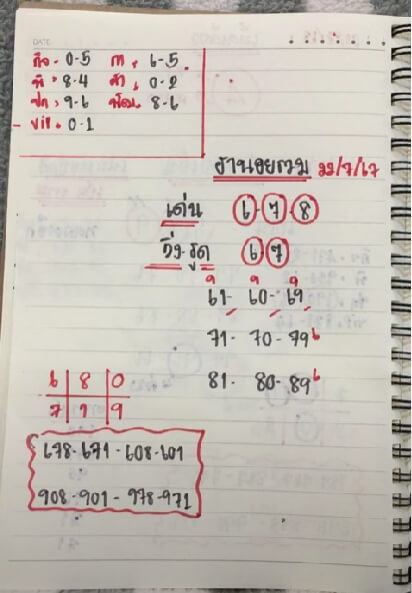 DATE
กิจ. 0-5 ภา. 6-5
พิ. 8-4 ค้ำ. 0-2
ปก. 9-6 พัฒ. 8-6
vip. 0-1
ฮานอยรวม 22/7/67
เด่น 6 7 8
วิ่งรูด 6 7
61- 60- 69
71- 70- 79
81- 80-89
6 8 0
7 1 9
678-671-608-601
908-901-978-971